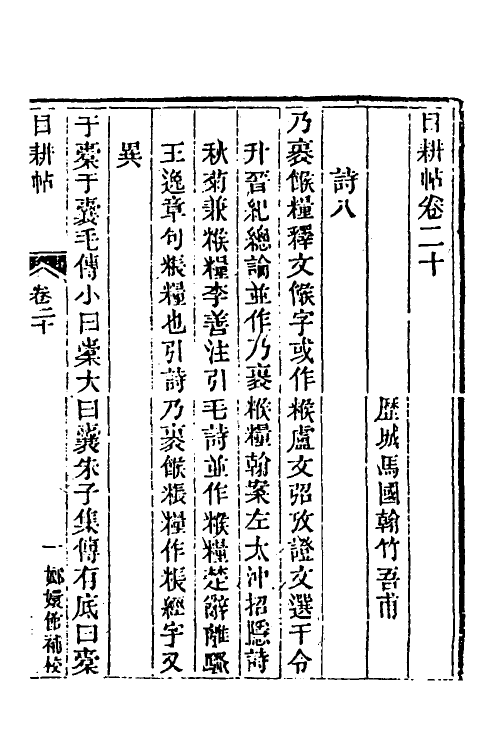 目耕帖卷二十
歷城馬國翰竹吾甫
詩八
乃裹餱糧釋文餱字或作糇盧文弨攷證文選干令
升晉紀總論並作乃裹糇糧翰案左太沖招隱詩
秋菊兼糇糧李善注引毛詩並作糇糧楚辭離騷
王逸章句粻糧也引詩乃裹餱粻糧作粻經字又
異
于橐于囊毛傳小曰橐大曰囊朱子集傳有底曰橐
目耕帖
卷二十
一
嫏嬛館補校